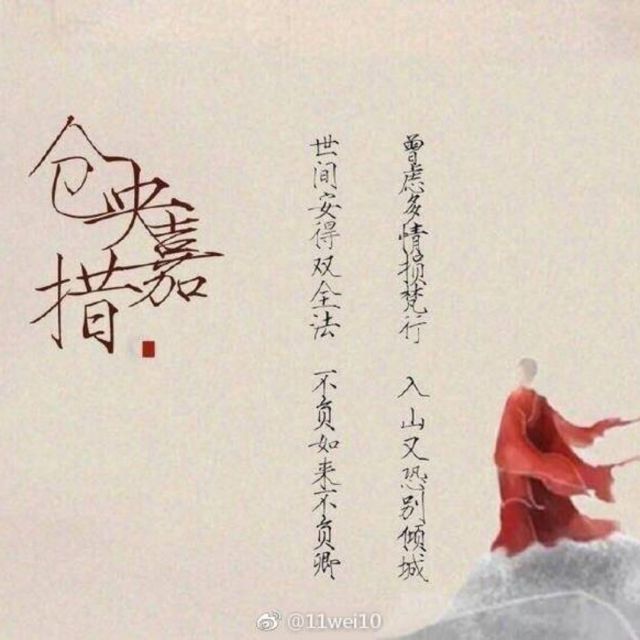 仓央嘉措
曾虑多情损梵行 入山又恐别倾城
世间安得双全法 不负如来不负卿
@11wei10